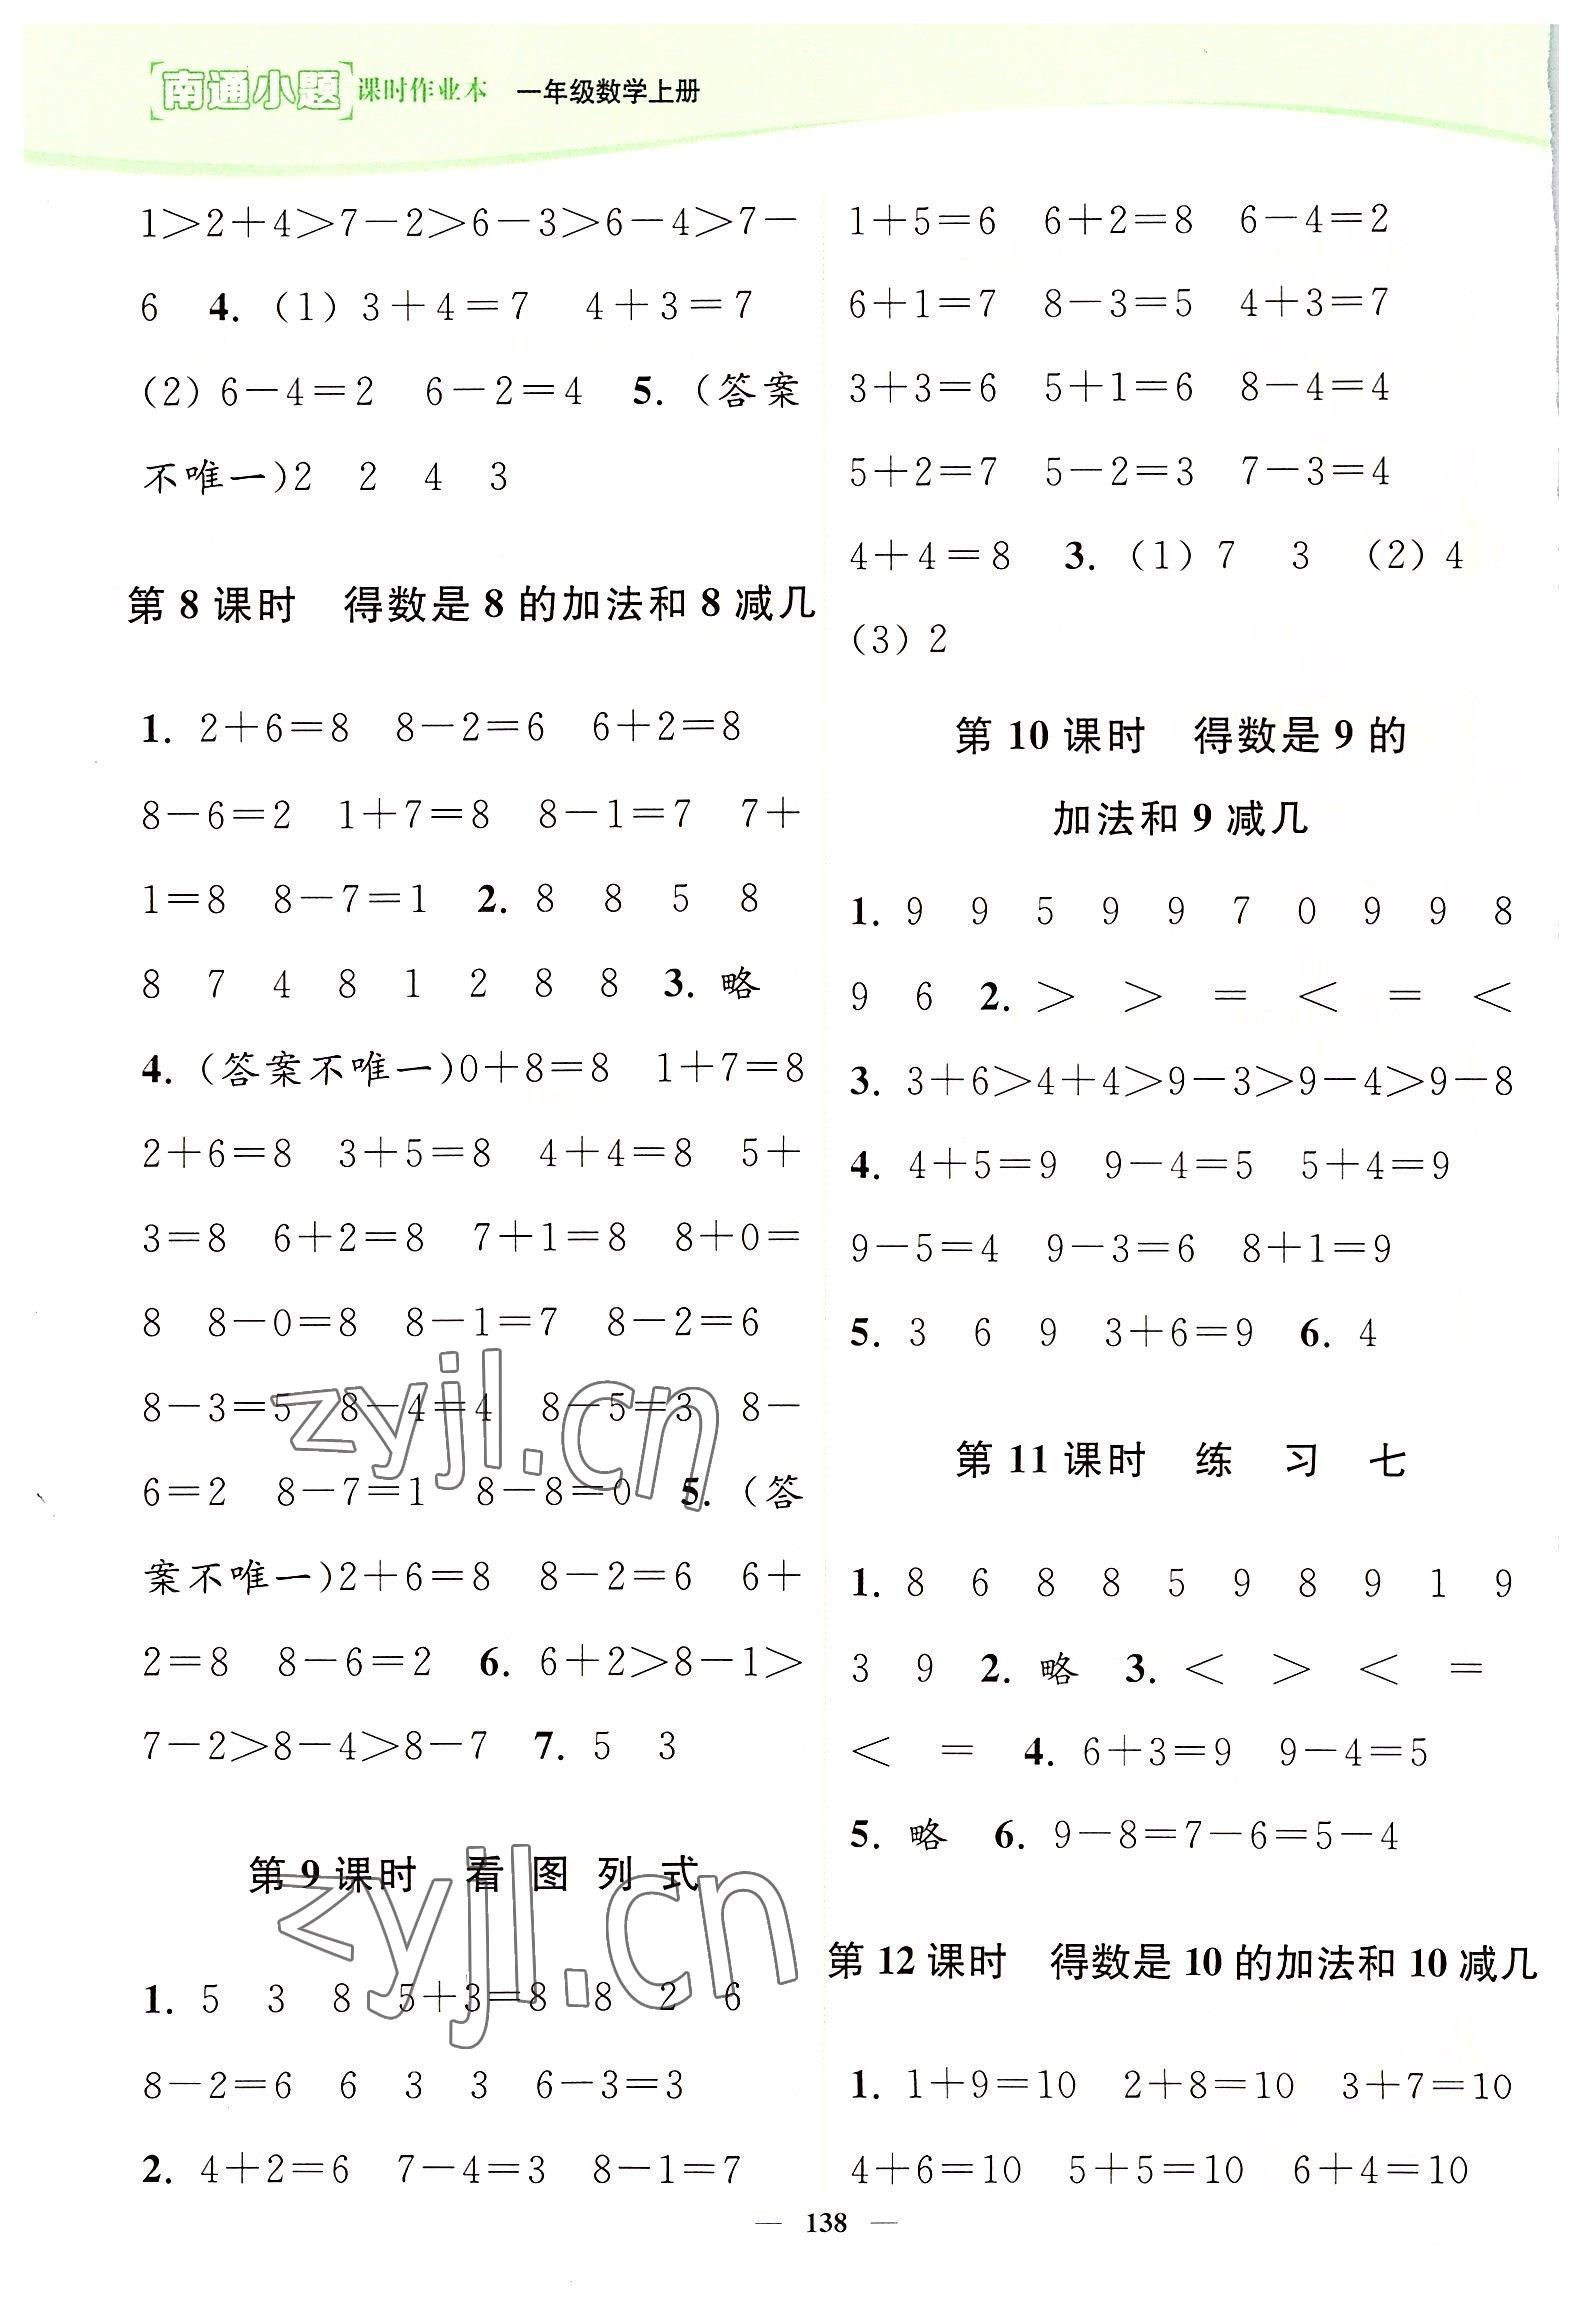 南通小题 课时作业本 一年级数学上册
1>2+4>7-2>6-3>6-4>7-
6 4. (1) 3+4=7 4+3=7
(2) 6-4=2 6-2=4 5. (答案
不唯一)2 2 4 3
第 8 课时 得数是 8 的加法和 8 减几
1. 2+6=8 8-2=6 6+2=8
8-6=2 1+7=8 8-1=7 7+
1=8 8-7=1 2. 8 8 5 8
8 7 4 8 1 2 8 8 3. 略
4. (答案不唯一)0+8=8 1+7=8
2+6=8 3+5=8 4+4=8 5+
3=8 6+2=8 7+1=8 8+0=
8 8-0=8 8-1=7 8-2=6
8-3=5 8-4=4 8-5=3 8-
6=2 8-7=1 8-8=0 5. (答
案不唯一)2+6=8 8-2=6 6+
2=8 8-6=2 6. 6+2>8-1>
7-2>8-4>8-7 7. 5 3
第 9 课时 看图列式
1. 5 3 8 5+3=8 8 2 6
8-2=6 6 3 3 6-3=3
2. 4+2=6 7-4=3 8-1=7
1+5=6 6+2=8 6-4=2
6+1=7 8-3=5 4+3=7
3+3=6 5+1=6 8-4=4
5+2=7 5-2=3 7-3=4
4+4=8 3. (1) 7 3 (2) 4
(3) 2
第 10 课时 得数是 9 的
加法和 9 减几
1. 9 9 5 9 9 7 0 9 9 8
9 6 2. > > = < = <
3. 3+6>4+4>9-3>9-4>9-8
4. 4+5=9 9-4=5 5+4=9
9-5=4 9-3=6 8+1=9
5. 3 6 9 3+6=9 6. 4
第 11 课时 练 习 七
1. 8 6 8 8 5 9 8 9 1 9
3 9 2. 略 3. < > < =
< = 4. 6+3=9 9-4=5
5. 略 6. 9-8=7-6=5-4
第 12 课时 得数是 10 的加法和 10 减几
1. 1+9=10 2+8=10 3+7=10
4+6=10 5+5=10 6+4=10
— 138 —
zyjl.cn
zyjl.cn